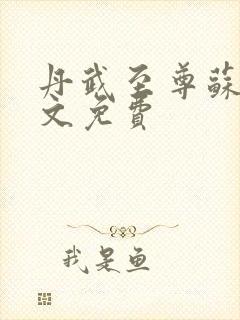 丹武至尊蘇
文免費
我是鱼